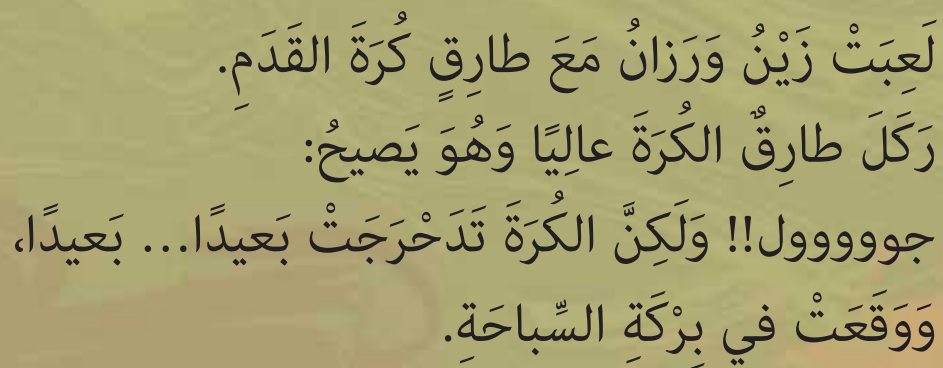 لَعِبَتْ زَيْنُ وَرَزانُ مَعَ طارِقٍ كُرَةَ القَدَمِ.
رَكَلَ طارِقٌ الكُرَةَ عالِيًا وَهُوَ يَصيحُ:
جوووووول!! وَلَكِنَّ الكُرَةَ تَدَحْرَجَتْ بَعيدًا... بَعيدًا،
وَوَقَعَتْ في بِرْكَةِ السِّباحَةِ.